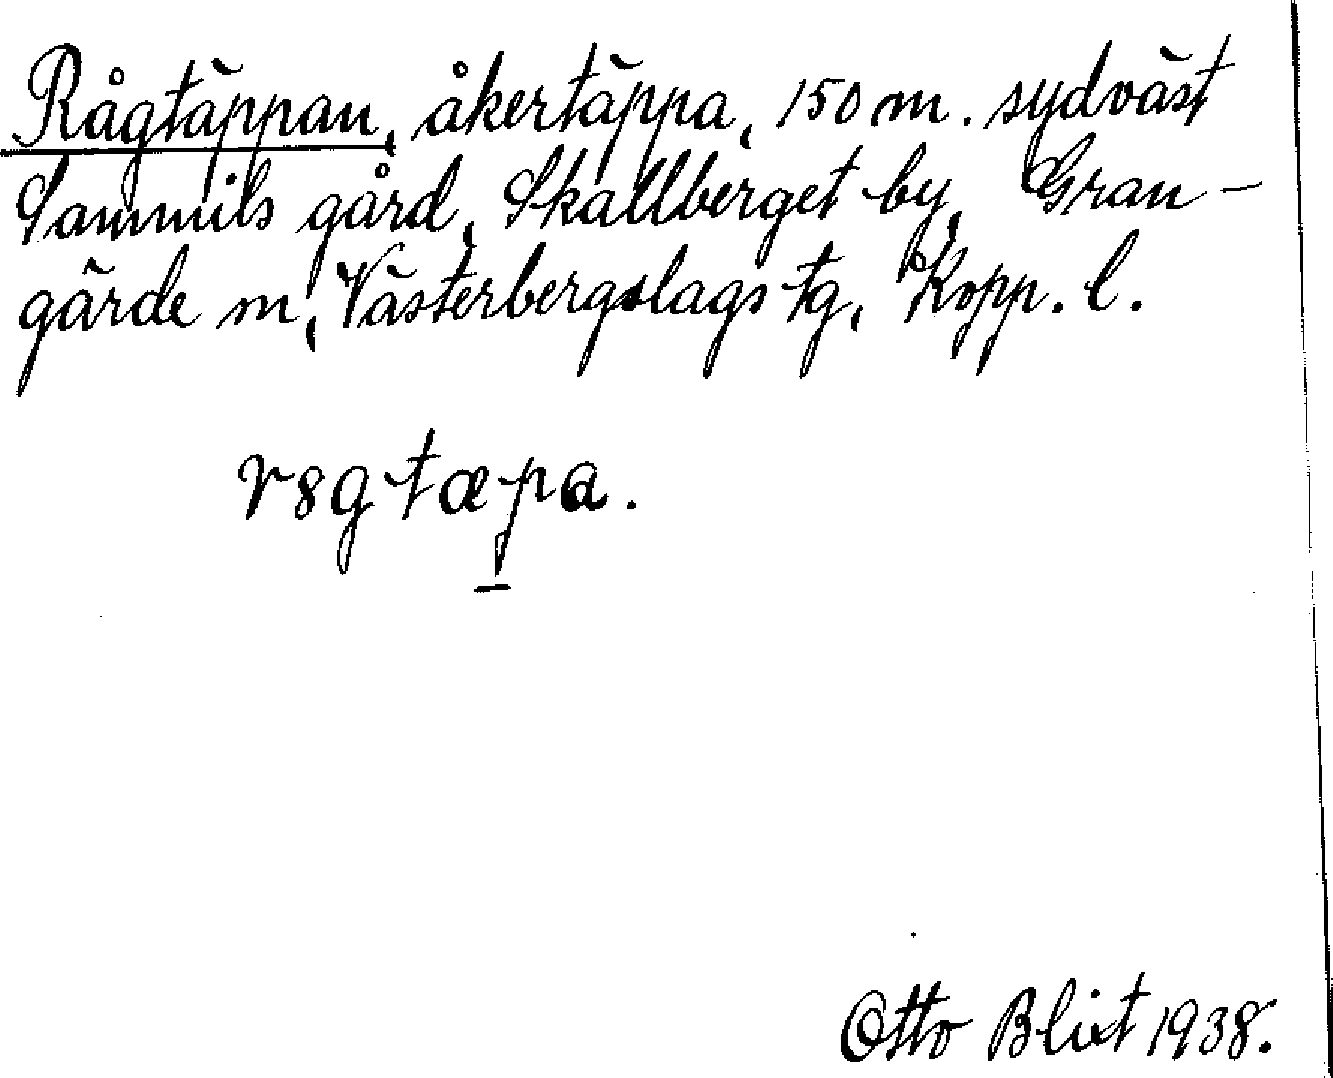 Rågtäppan, åkertäppa, 150 m. sydväst
Sammils gård, Skallberget by, Gran-
gärde m, Västerbergslags tg, Kopp. l.
r8gtæp̠a.
Otto Blixt 1938.